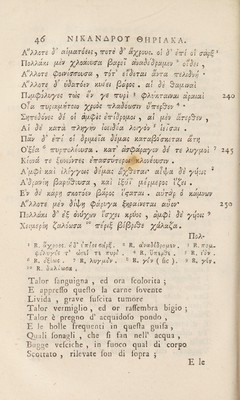 46 ΝΙΚΑΝΔΡΟΥ ΘΗΡΙΑΚΑ.
Ἄλλοτε δ' αἱματόεις, ποτὲ δ' ἄχροος. οἱ δ' ἐπὶ οἱ σὰρξ
Πολλάκι μὲν χλοάουσα βαρεῖ ἀναδέδρομεν οἴδει,
Ἄλλοτε φοινίσσουσα, τότ' εἴδεται ἄντα πελιδνή
Ἄλλοτε δ' ὑδατόεν κυέει βάρος. αἱ δὲ θαμειαὶ
Πομφόλυγες τὼς ἔν γε πυρὶ φλύκταιναι ἀραιαὶ 240
Οἷα πυρικμήτοιο χροὸς πλαδόωσιν ὕπερθεν
Σηπεδόνες δὲ οἱ ἀμφὶς ἐπίδρομοι, αἱ μὲν ἄπερθεν,
Αἱ δὲ κατὰ πληγὴν ἰοειδέα λοιγὸν ἱεῖσαι.
Πᾶν δ' ἐπὶ οἱ δριμεῖα δέμας καταβόσκεται ἄτη
Ὀξέα πυρπολέουσα. κατ' ἀσφάραγον δέ τε λυγμοὶ 245
Κίονά τε ξυνιόντες ἐπασσύτεροι κλονέουσιν
Ἀμφὶ καὶ ἰλίγγοις δέμας ἄχθεται· αἶψα δὲ γυίοις
Ἀδρανίη βαρύθουσα, καὶ ἰξύϊ μέρμερος ἵζει
Ἐν δὲ κάρη σκοτόεν βάρος ἵσταται. αὐτὰρ ὁ κάμνων
Ἄλλοτε μὲν δίψῃ φάρυγα ξηραίνεται αὖον 250
Πολλάκι δ' ἐξ ὀνύχων ἴσχει κρύος, ἀμφὶ δὲ γυίοις
Χειμερίη ζαλόωσα περιξ βέβριθε χάλαζα.
Πολ-
Talor sanguigna, ed ora scolorita;
E appresso questo la carne sovente
Livida, grave suscita tumore
Talor vermiglio, ed or rassembra bigio;
Talor è pregno d' acquidoso pondo,
E le bolle frequenti in questa guisa,
Quali sonagli, che si fan nell' acqua,
Bogge vesciche, in fuoco qual di corpo
Scottato, rilevate son di sopra;
E le